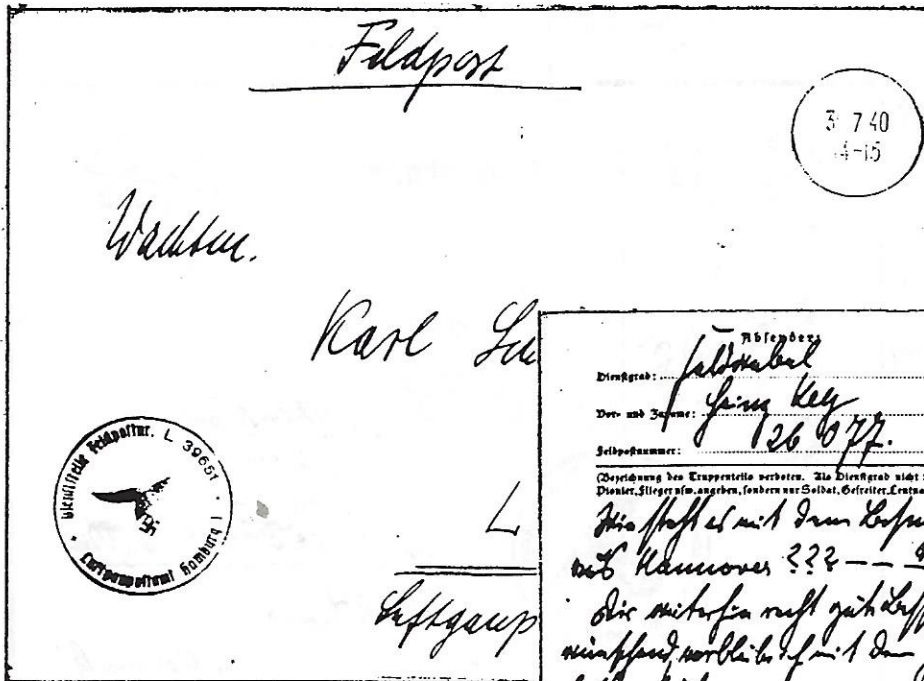 Feldpost
3 7 40
4-15
Wachtm.
Karl
Dienststelle Feldpostnr. L 39651
Luftgaupostamt Hamburg 1
L
Luftgaup
Absender:
Dienstgrad: Feldwebel
Vor- und Zuname: Heinz
Feldpostnummer: 26 077.
(Bezeichnung des Truppenteils verboten. Als Dienstgrad nicht
Pionier, Flieger usw. angeben, sondern nur Soldat, Gefreiter, Leutna
Wie steht es mit dem Besu
aus Hannover ??? — —
Dir weiterhin recht gute Bess
wünschend, verbleibe ich mit dem